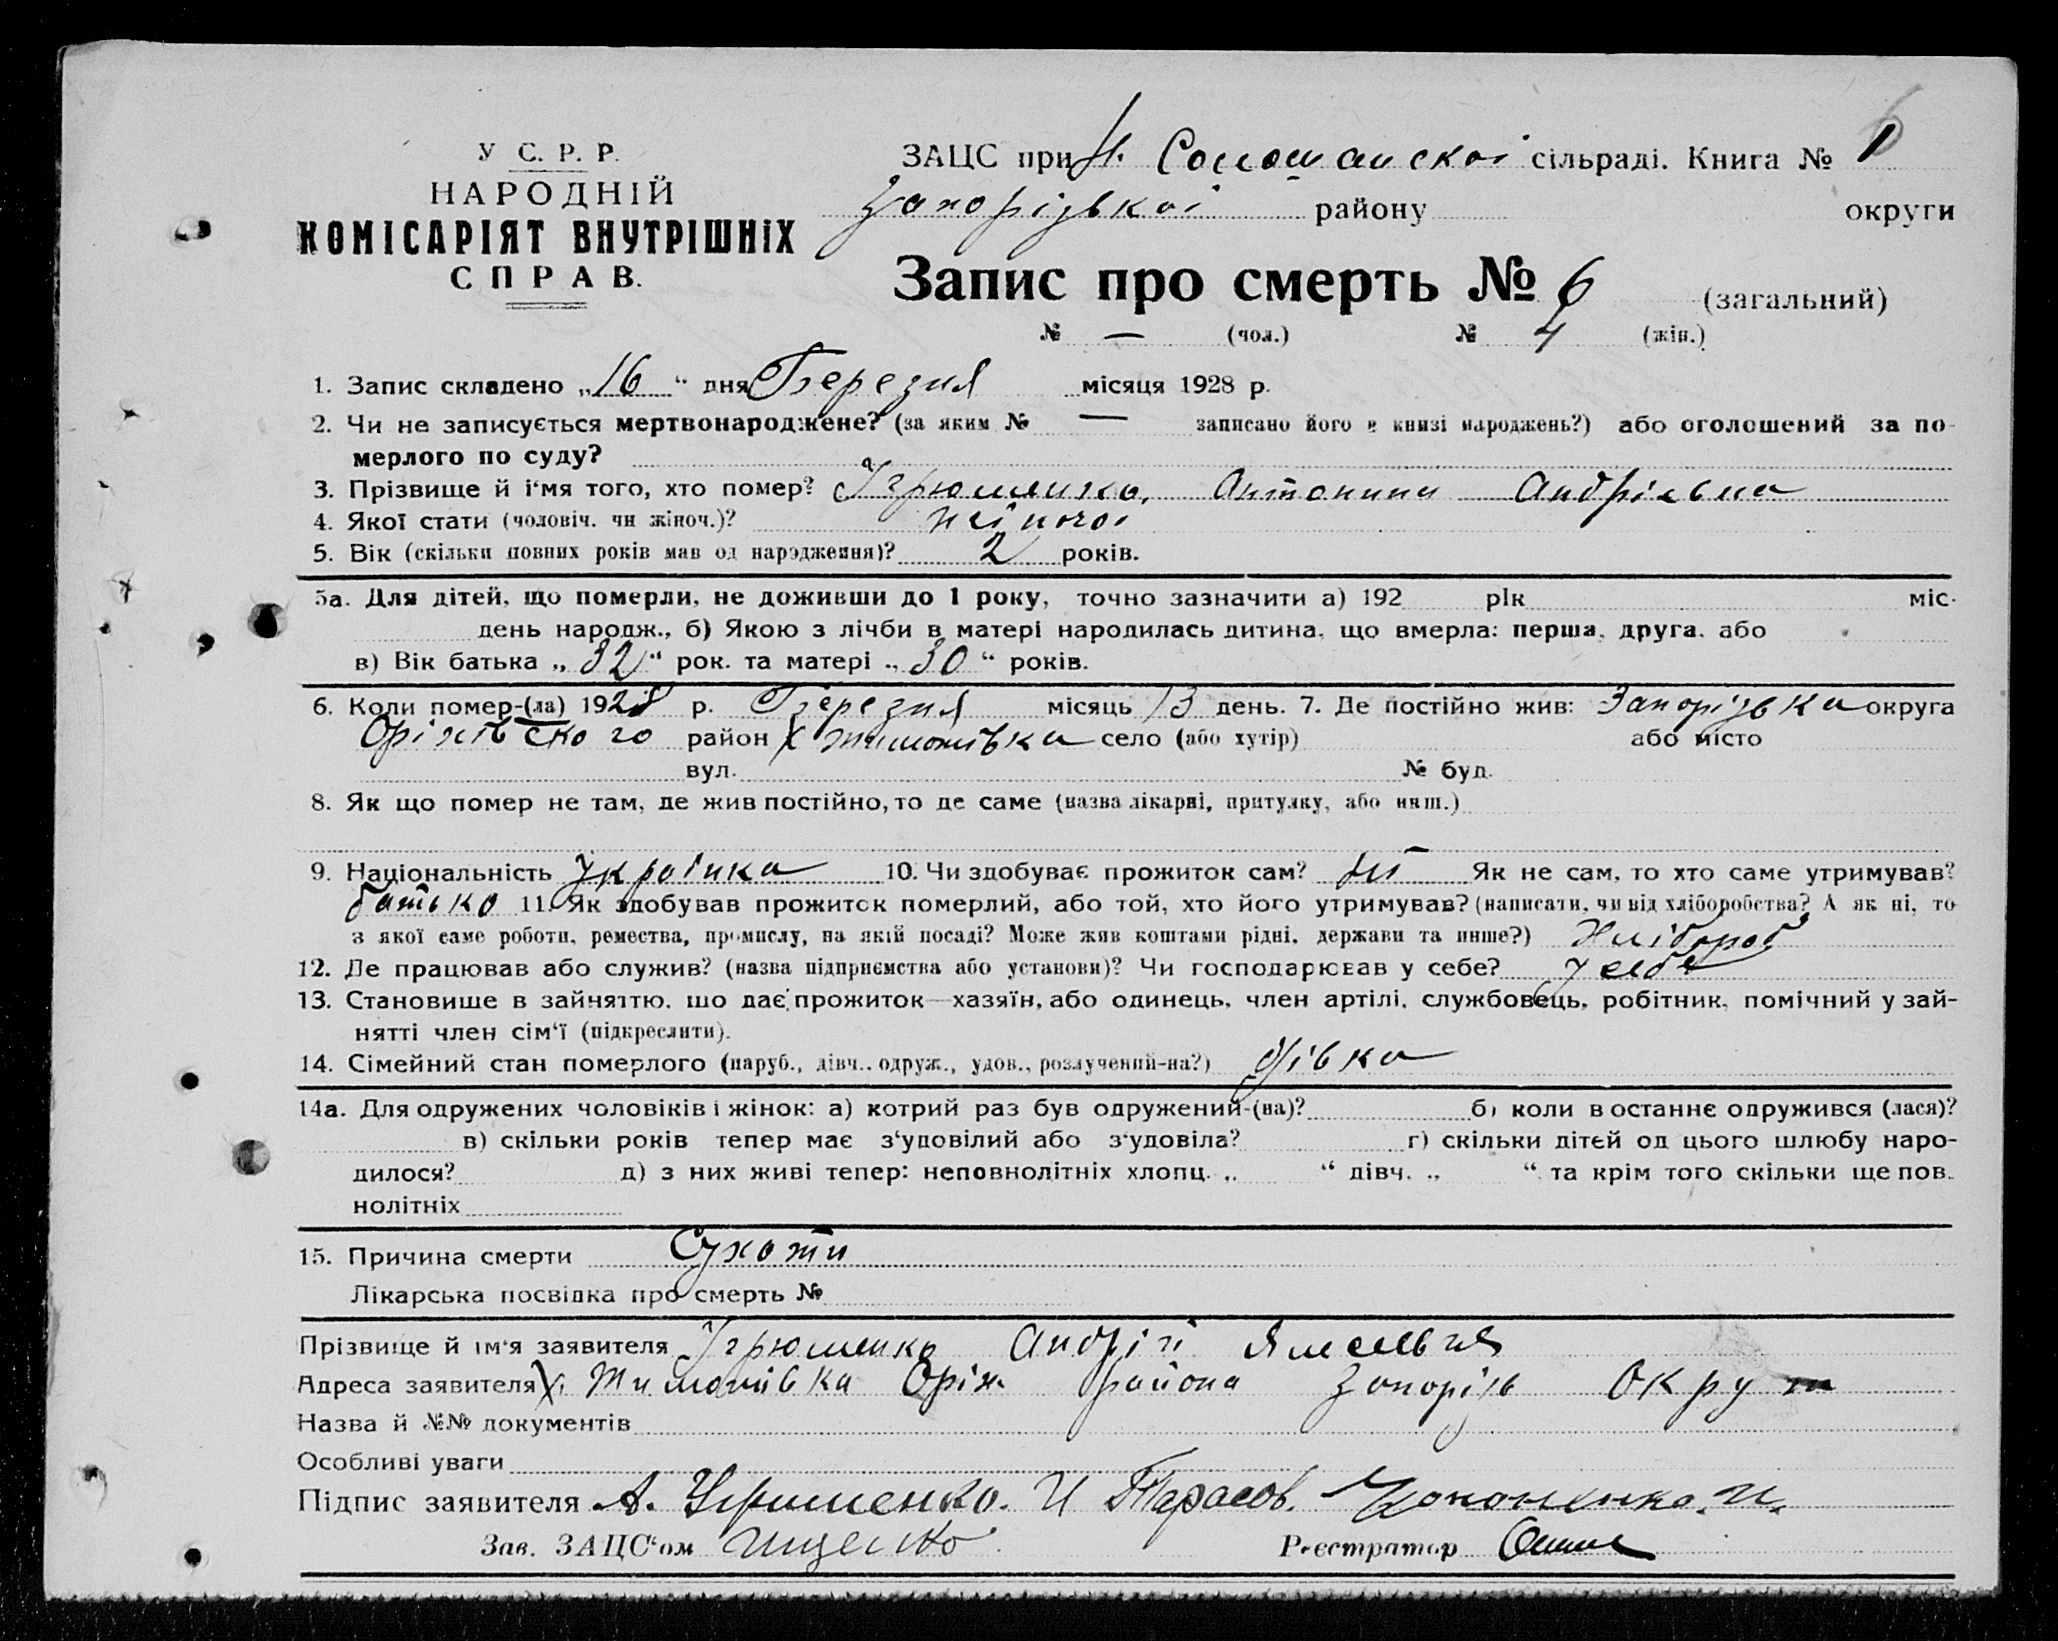 У С. Р. Р.
НАРОДНІЙ
КОМІСАРІЯТ ВНУТРІШНІХ
СПРАВ.
ЗАЦС при сільраді. Книга № 1
Запорізької району округи
Запис про смерть № 6 (загальний)
№ — (чол.) № 4 (жін.)
1. Запис складено „16“ дня Березня місяця 1928 р.
2. Чи не записується мертвонароджене? (за яким № — записано його в книзі народжень?) або оголошений за по-
мерлого по суду?
3. Прізвище й і‘мя того, хто помер? Угрюменко, Антонина Андріевна
4. Якої стати (чоловіч. чи жіноч.)? жіночоі
5. Вік (скільки повних років мав од народження)? 2 років.
5а. Для дітей, що померли, не доживши до 1 року, точно зазначити а) 192 рік міс.
день народж., б) Якою з лічби в матері народилась дитина, що вмерла: перша, друга, або
в) Вік батька „32“ рок. та матері „30“ років.
6. Коли помер-(ла) 1928 р. Березня місяць 13 день. 7. Де постійно жив: Запорізька округа
Оріхівського район х Тимошівка село (або хутір) або місто
вул. № буд.
8. Як що помер не там, де жив постійно, то де саме (назва лікарні, притулку, або инш.)
9. Національність Украінка 10. Чи здобуває прожиток сам? Ні Як не сам, то хто саме утримував?
батько 11. Як здобував прожиток померлий, або той, хто його утримував? (написати, чи від хліборобства? А як ні, то
з якої саме роботи, ремества, промислу, на якій посаді? Може жив коштами рідні, держави та инше?) Хлібороб
12. Де працював або служив? (назва підприємства або установи)? Чи господарював у себе? у себе
13. Становище в зайняттю, що дає прожиток—хазяїн, або одинець, член артілі, службовець, робітник, помічний у зай-
нятті член сім‘ї (підкреслити).
14. Сімейний стан померлого (паруб., дівч., одруж., удов., розлучений-на?) дівка
14а. Для одружених чоловіків і жінок: а) котрий раз був одружений-(на)? б) коли в останнє одружився (лася)?
в) скільки років тепер має з‘удовілий або з‘удовіла? г) скільки дітей од цього шлюбу наро-
дилося? д) з них живі тепер: неповнолітніх хлопц. „ “ дівч. „ “ та крім того скільки ще пов.
нолітніх
15. Причина смерти Сухоти
Лікарська посвідка про смерть №
Прізвище й ім‘я заявителя Угрюменко Андрій
Адреса заявителя х. Тимошівка Оріх. района Запорізь Округи
Назва й №№ документів
Особливі уваги
Підпис заявителя А. Угрюменко. И Тарасов. Кононенко. И.
Зав. ЗАЦС‘ом Ищенко Реєстратор